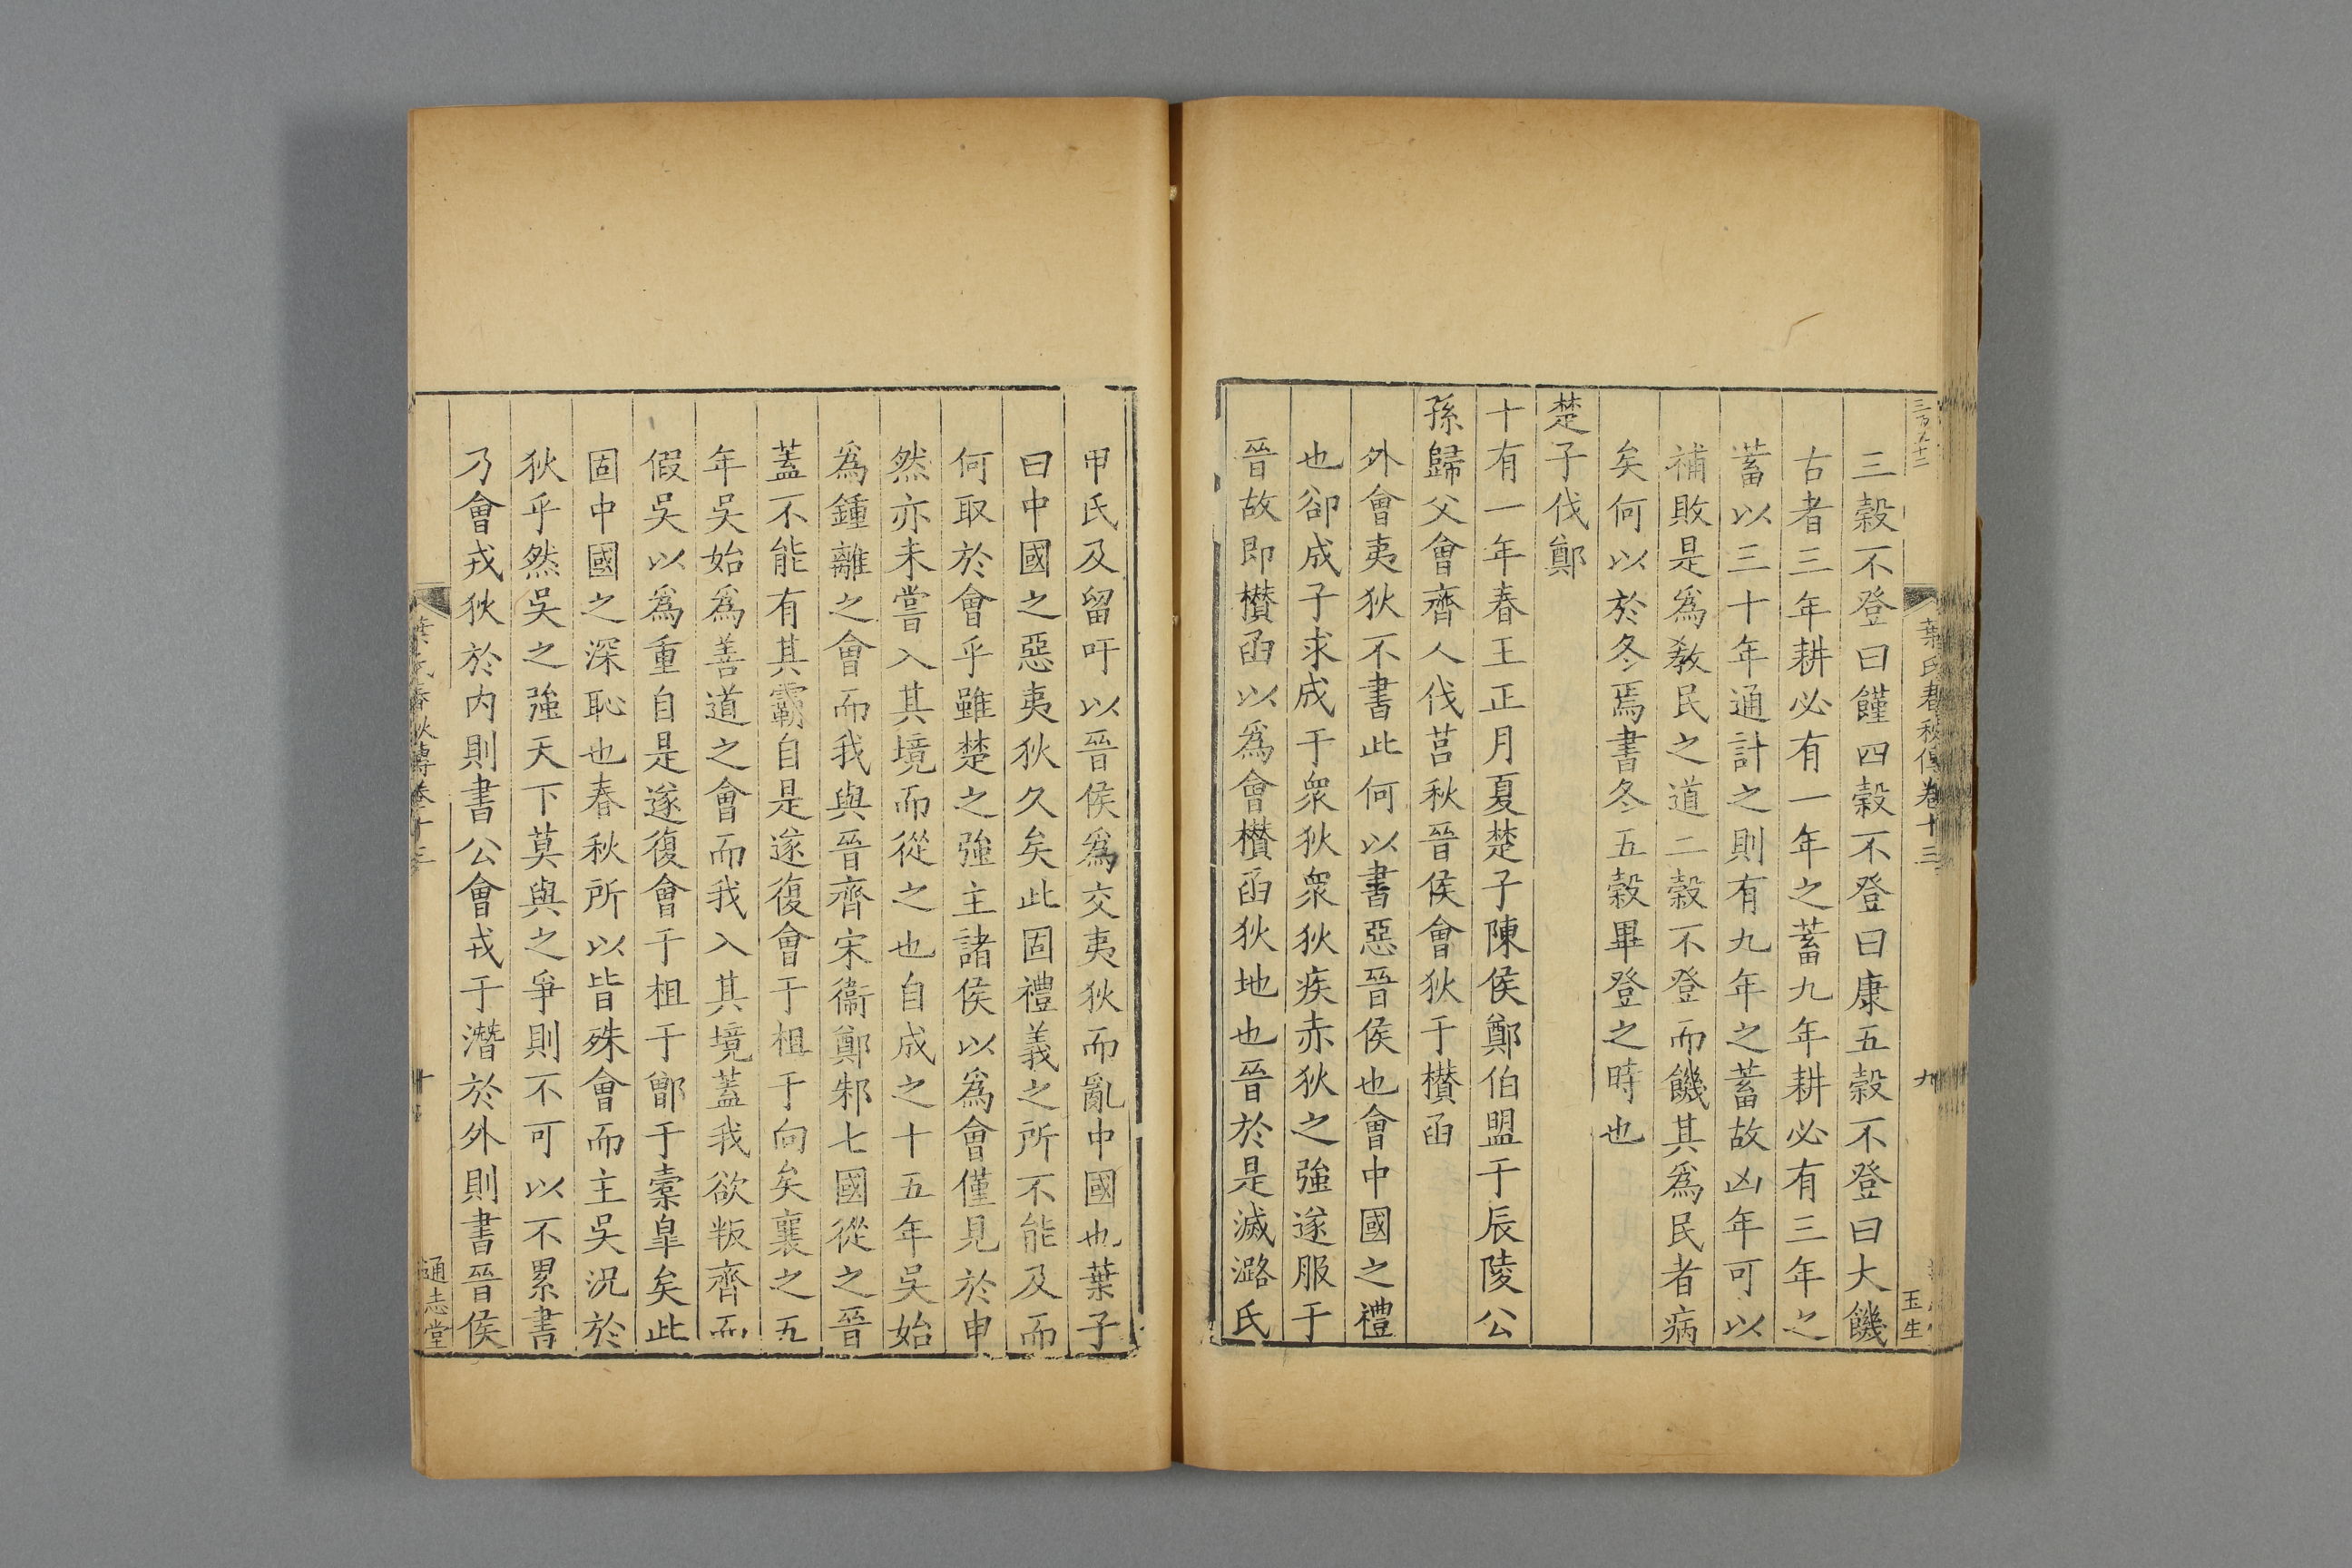 葉氏春秋傳卷十三
九
玉生
三穀不登曰饉四穀不登曰康五穀不登曰大饑
古者三年耕必有一年之蓄九年耕必有三年之
蓄以三十年通計之則有九年之蓄故凶年可以
補敗是爲敎民之道二穀不登而饑其爲民者病
矣何以於冬焉書冬五穀畢登之時也
楚子伐鄭
十有一年春王正月夏楚子陳侯鄭伯盟于辰陵公
孫歸父會齊人伐莒秋晉侯會狄于欑函
外會夷狄不書此何以書惡晉侯也會中國之禮
也卻成子求成于衆狄衆狄疾赤狄之強遂服于
晉故即欑函以爲會欑函狄地也晉於是滅潞氏
甲氏及留吁以晉侯爲交夷狄而亂中國也葉子
曰中國之惡夷狄久矣此固禮義之所不能及而
何取於會乎雖楚之強主諸侯以爲會僅見於申
然亦未嘗入其境而從之也自成之十五年吳始
爲鍾離之會而我與晉齊宋衞鄭邾七國從之晉
蓋不能有其霸自是遂復會于柤于向矣襄之五
年吳始爲善道之會而我入其境蓋我欲叛齊而
假吳以爲重自是遂復會于柤于鄫于橐臯矣此
固中國之深恥也春秋所以皆殊會而主吳況於
狄乎然吳之強天下莫與之爭則不可以不累書
乃會戎狄於内則書公會戎于潛於外則書晉侯
葉氏春秋傳卷十三
十
通志堂